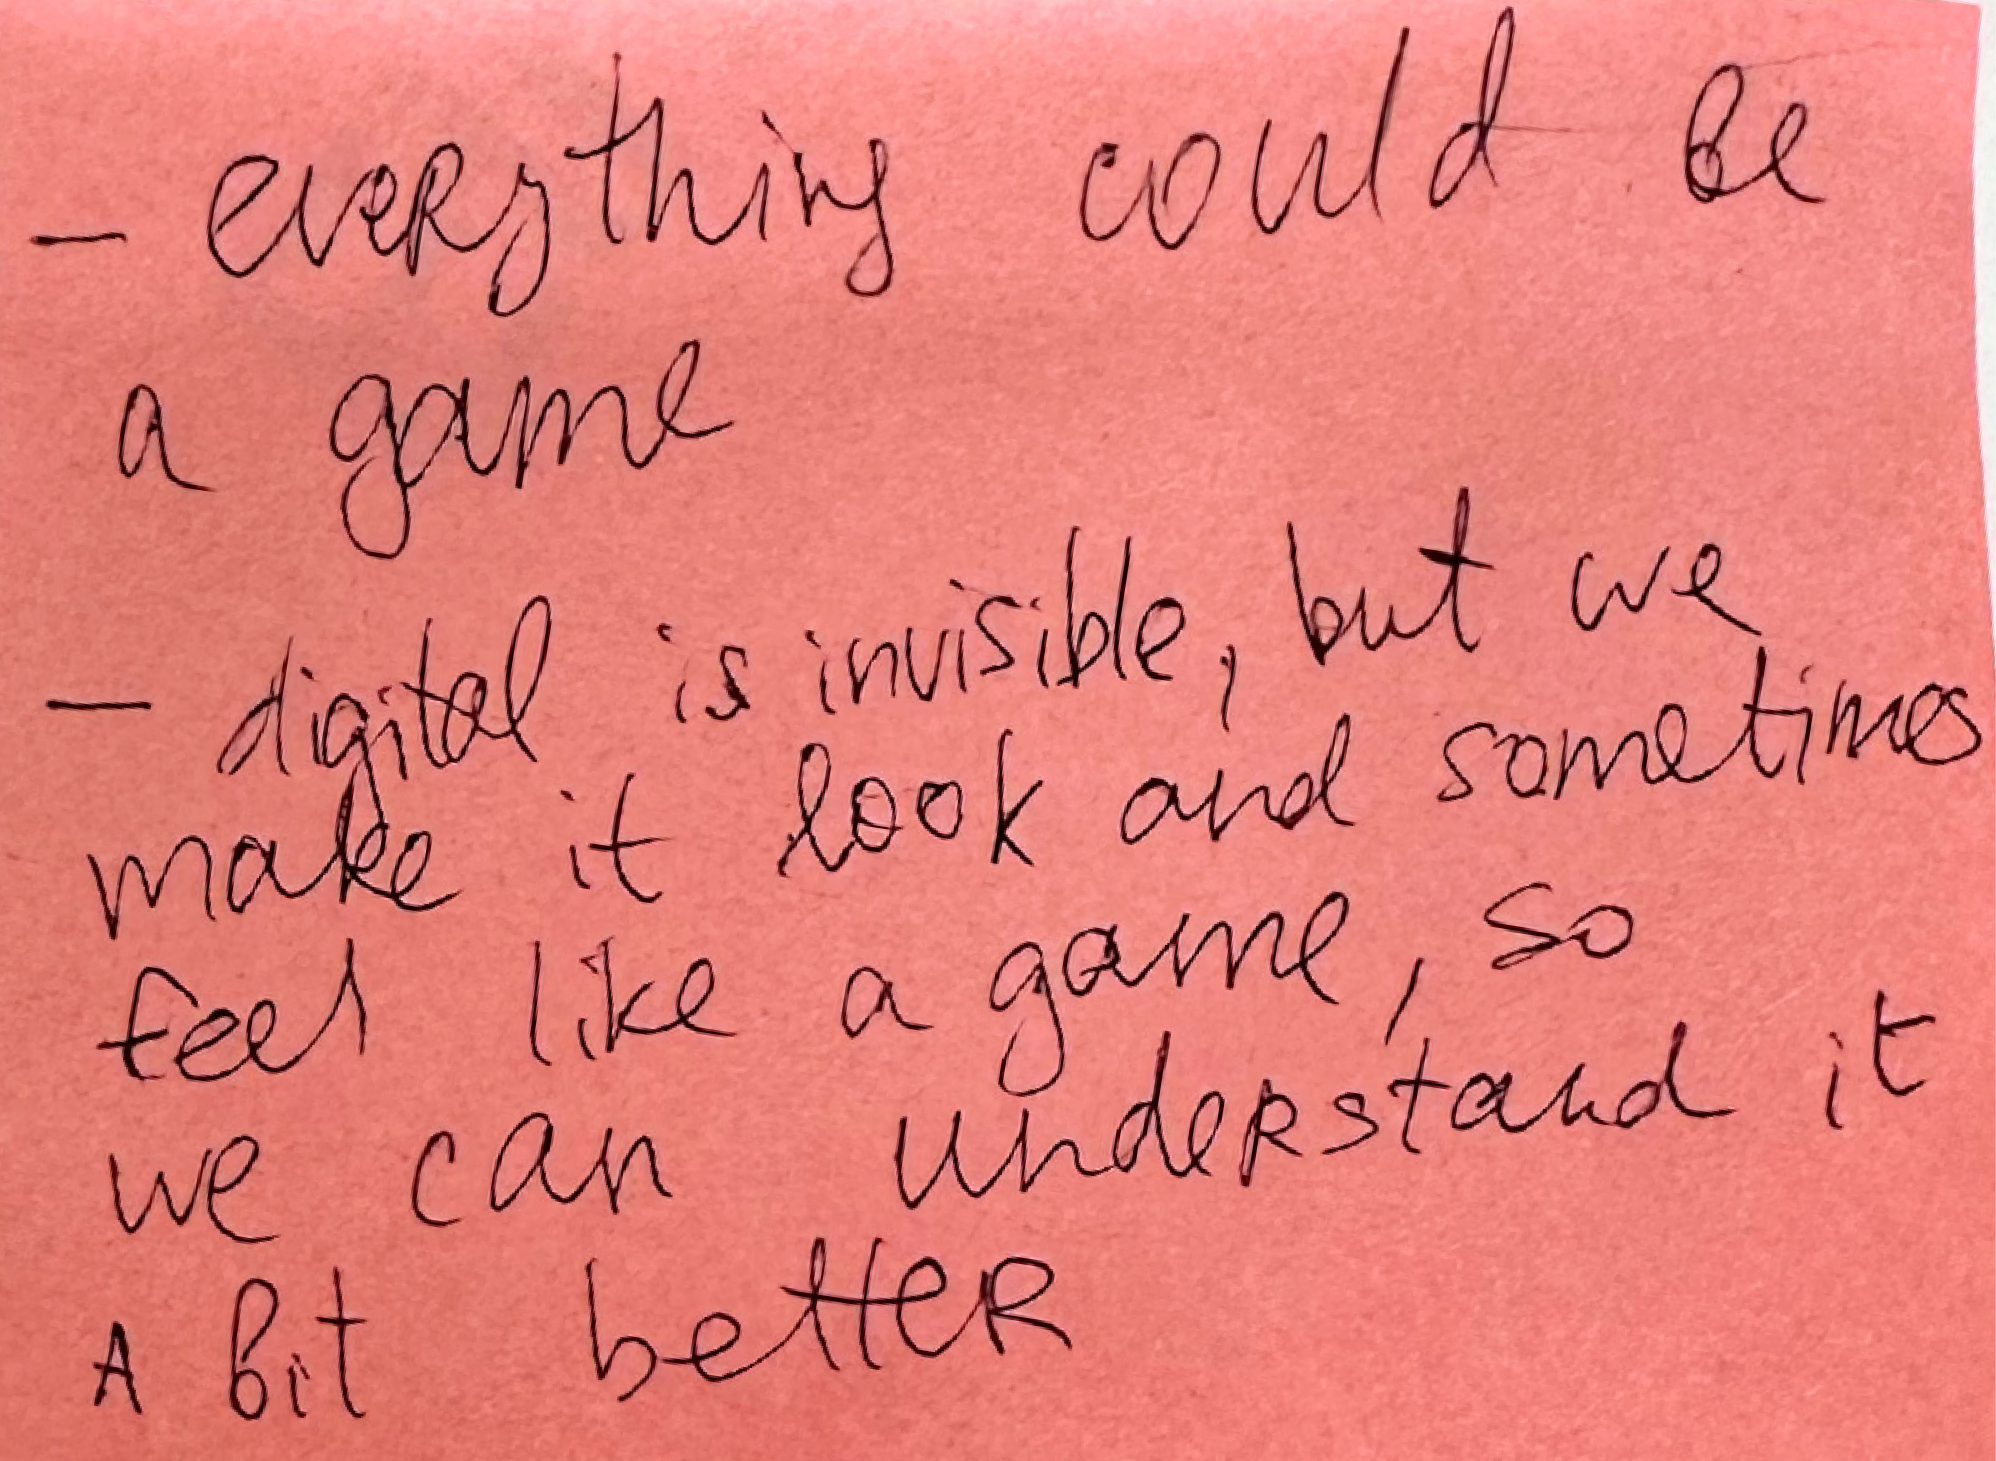 - everything could be
a game
- digital is invisible, but we
make it look and sometimes
feel like a game, so
we can understand it
A bit better